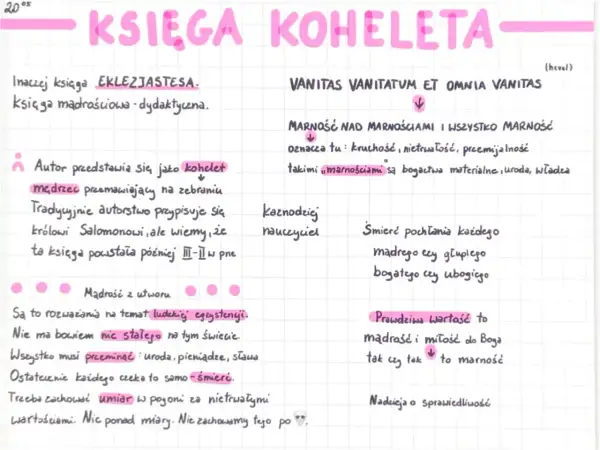 20 05
KSIĘGA KOHELETA
Inaczej księga EKLEZJASTESA.
Księga mądrościowa - dydaktyczna.
(hevel)
VANITAS VANITATUM ET OMNIA VANITAS
MARNOŚĆ NAD MARNOŚCIAMI I WSZYSTKO MARNOŚĆ
oznacza tu: kruchość, nietrwałość, przemijalność
takimi „marnościami" są bogactwa materialne, uroda, władza
Autor przedstawia się jako kohelet
mędrzec przemawiający na zebraniu
Tradycyjnie autorstwo przypisuje się
królowi Salomonowi, ale wiemy, że
ta księga powstała później III-II w pne
kaznodziej
nauczyciel
Śmierć pochłania każdego
mądrego czy głupiego
bogatego czy ubogiego
Mądrość z utworu
Są to rozważania na temat ludzkiej egzystencji.
Nie ma bowiem nic stałego na tym świecie.
Wszystko musi przeminąć: uroda, pieniądze, sława
Ostatecznie każdego czeka to samo - śmierć.
Trzeba zachować umiar w pogoni za nietrwałymi
wartościami. Nic ponad miarę. Nie zachowamy tego po 💀.
Prawdziwa wartość to
mądrość i miłość do Boga
tak czy tak to marność
Nadzieja o sprawiedliwość